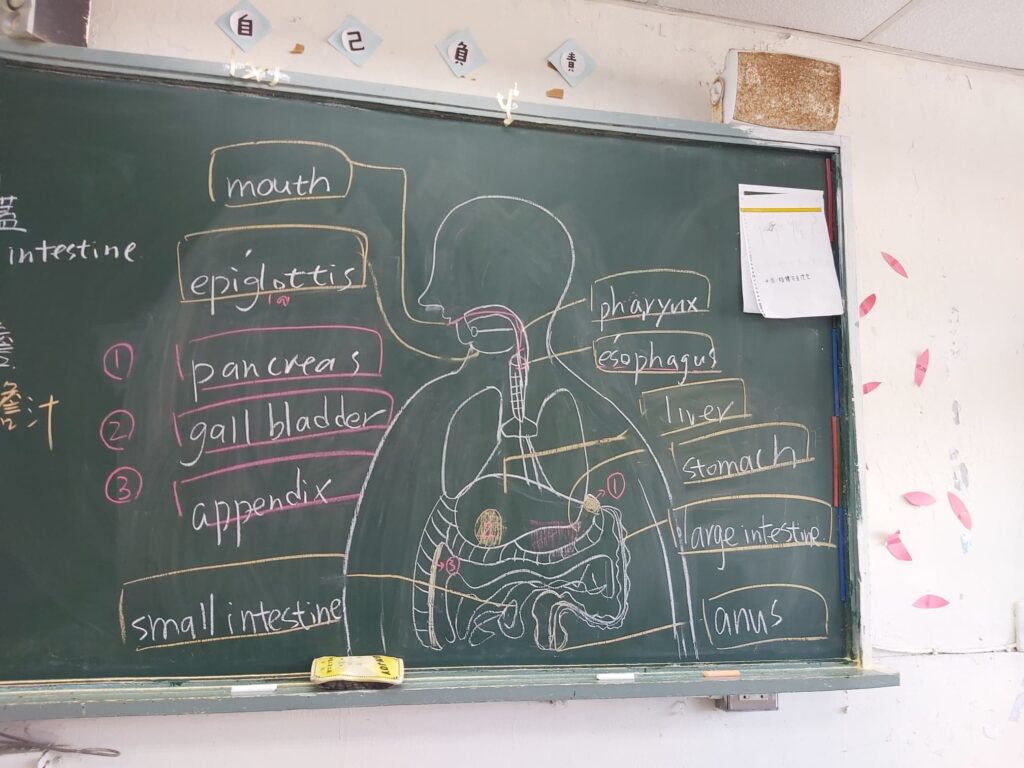 自 己 負 責
intestine
汁
mouth
epiglottis
① pancreas
② gall bladder
③ appendix
small intestine
pharynx
esophagus
liver
stomach
large intestine
anus
①
③